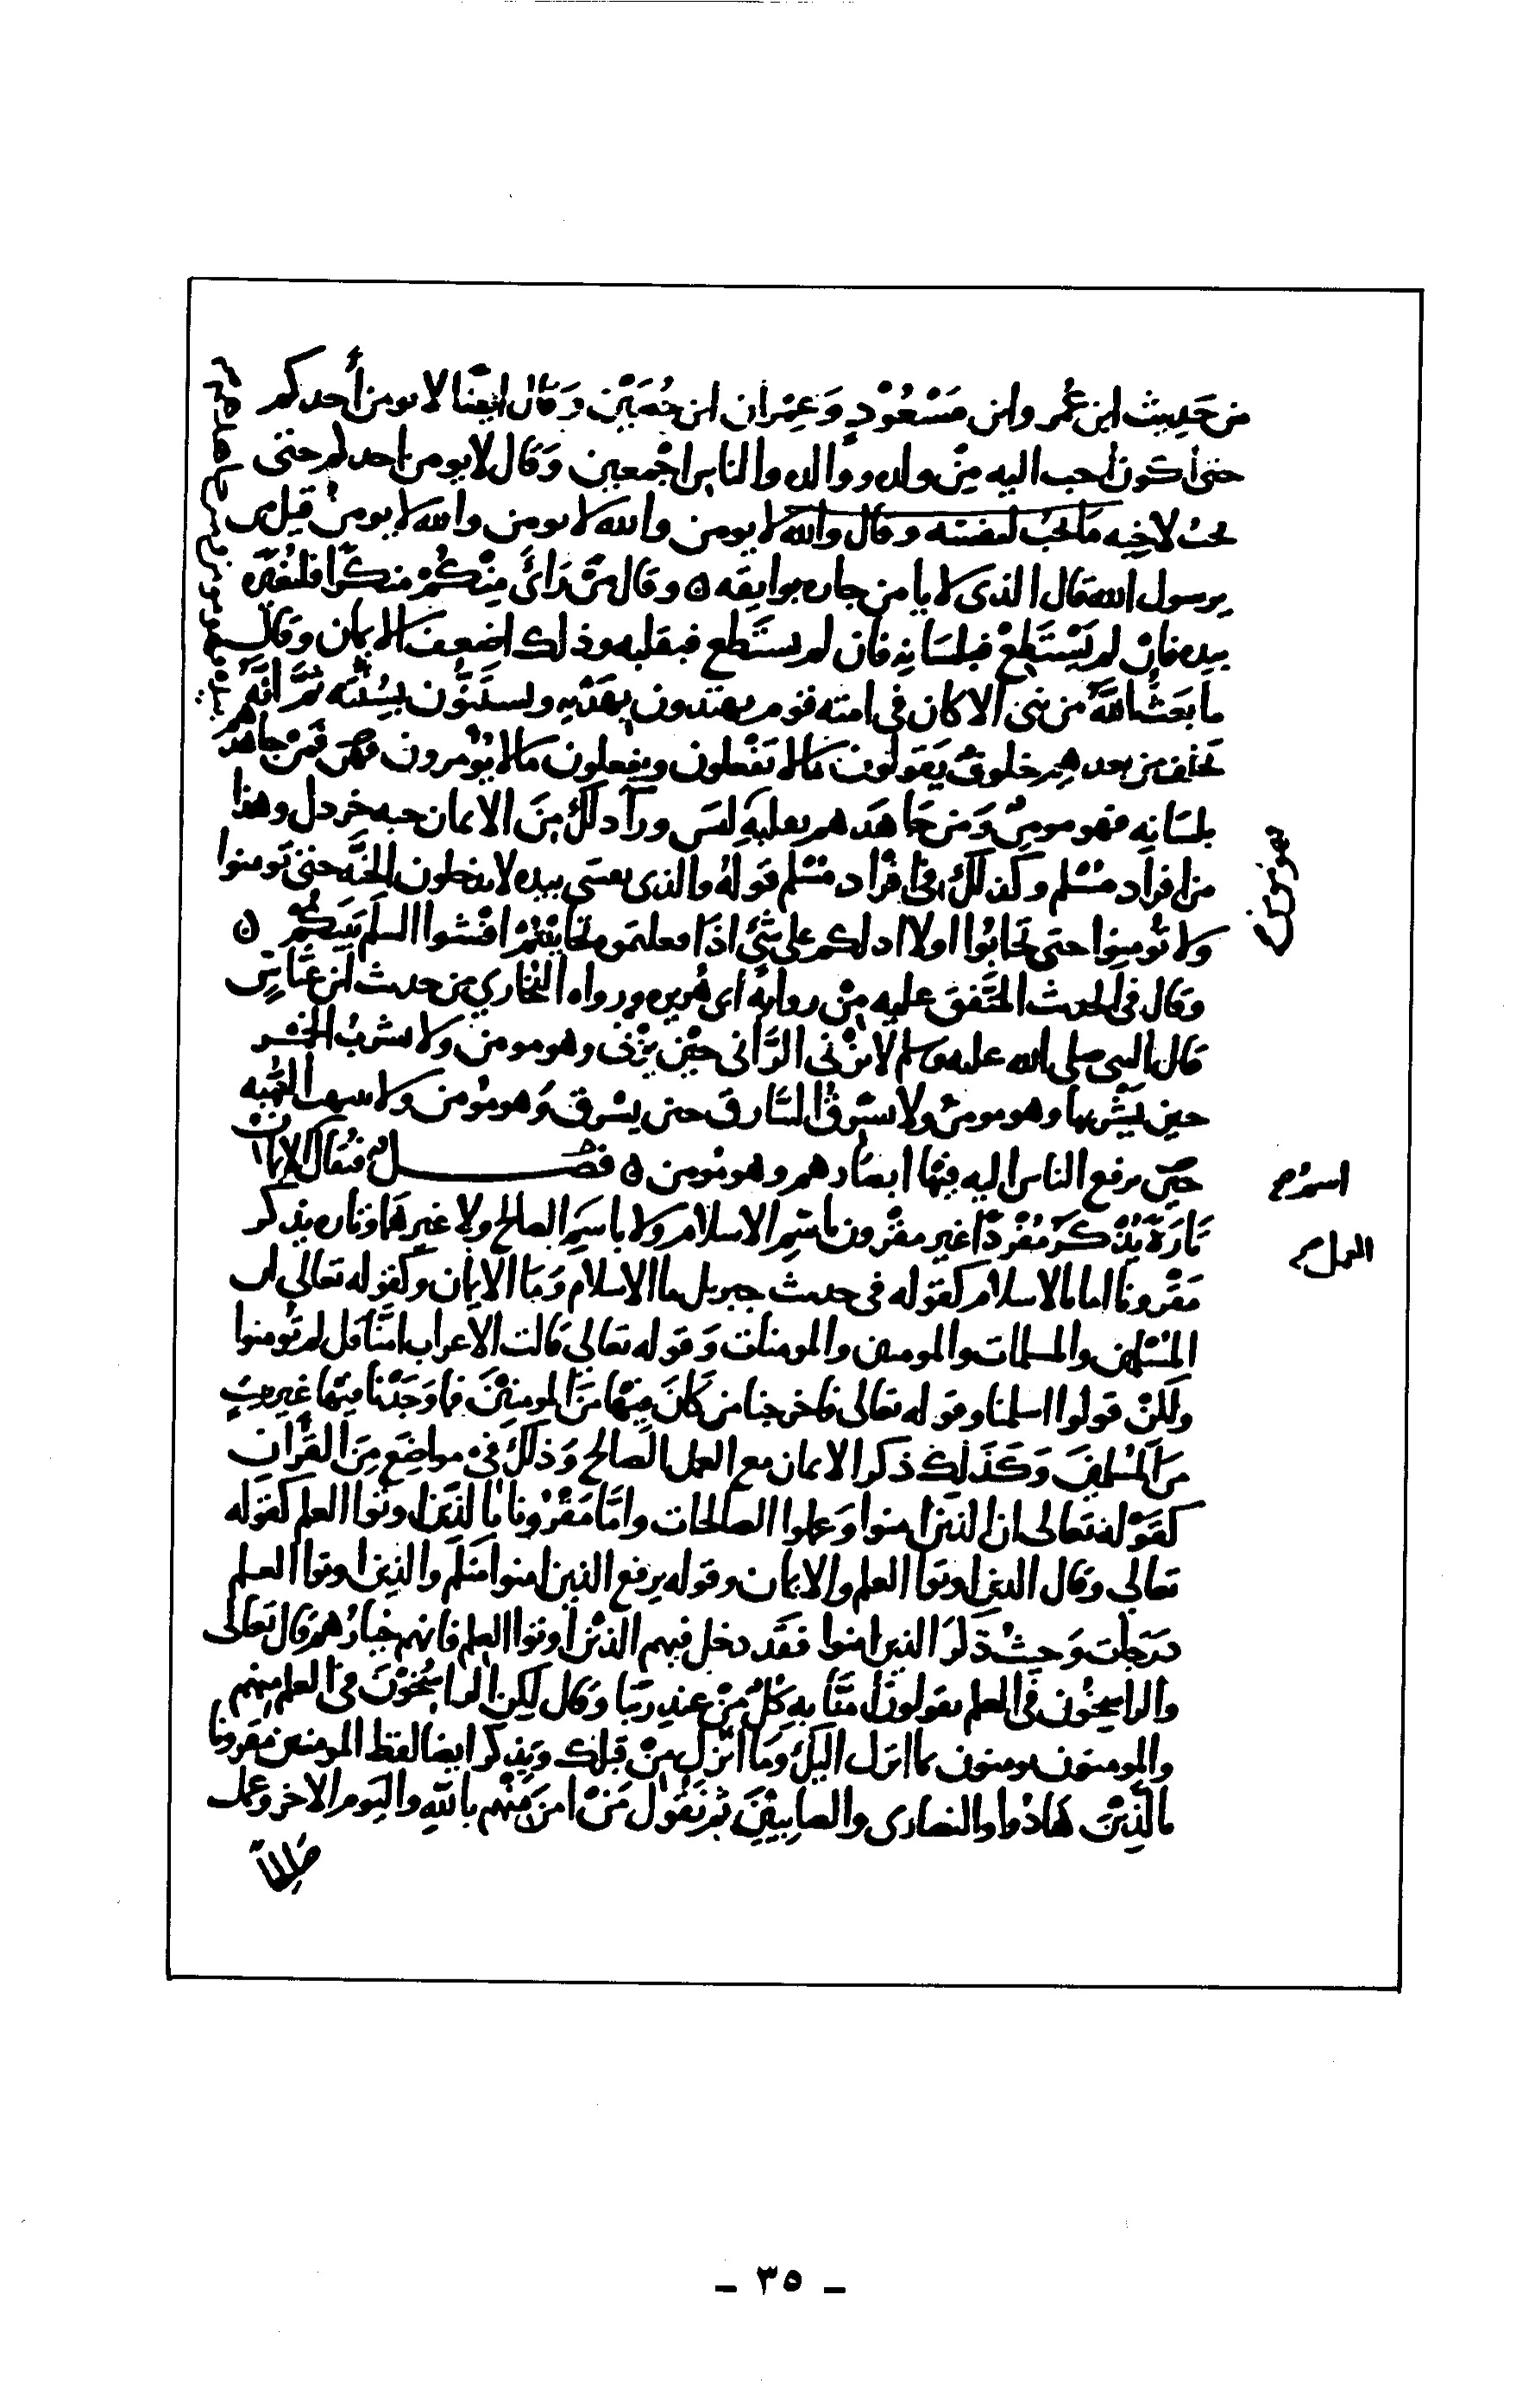 من حَدِيث ابن عُمر وابن مَسْعُوْدٍ وَعِمْران ابن حُصَيْن وَقَالَ ايضًا لا يومن أحدكم
حتى أكون أحب اليه مِنْ ولده ووالده والناس اجْمعين وَقَال لا يومن احدكم حتى
يحب لاخيه مَا يحبُ لنفسه وقال والله لا يومن والله لا يومن والله لا يومنُ قيل من
يرسول الله قال الذى لا يامن جاره بوايقه ه وقال مَنْ رَائَ مِنْكُمْ منكرًا فليُغَيّره
بيده فان لم يَسْتَطِعْ فبلسَانِه فان لم يستَطع فبقلبه وذلك اضعف الايمان وَقَال
ما بَعَثَ اللهُ من نبى الا كان فى امته قوم يهتدون بهَدْيِه ويستَنُّون بسُنّتَه ثمَّ انَّهُ
تخلف من بعدهم خلوفٌ يَقولون مالا تفعلون ويفعلون مالا يُؤْمرون فمَنْ جاهدهم
بلسَانِه فهو مومنٌ وَمَن جَاهَدهم بقلبِهِ ليسَ ورآ ذلك مِنَ الايمان حبه خردل وهذا
من افراد مسْلم وكذلك فى افراد مسْلم قولهُ والذى نفسى بيده لا يدخلون الجنَّه حتى تومنوا
ولا تُومِنوا حتى تحَابُّوا اولا ادلكم على شئ اذا فعلتموه تحَابَبْتُمْ افشوا السلَم بَيْنكُمْ ه
وقال فى الحديث المتَّفق عليه مِنْ روايَة ابى هُريره ورواه البُخَاري من حديث ابن عبَّاسٍ
قال النبى صلى الله عليه وسلم لا يزْنى الزَّانى حِيْن يزْنى وهو مومن ولا يشربُ الخمْر
حين يَشْربها وهو مومنٌ ولا يسْرقُ السَّارق حين يسْرق وَهو مؤمن ولا ينهب النهبه
حين يرفع الناس اليه فيهَا ابصَارهم وهو مُومن ه فصْـــل فيُقَال الايمان
تَارَةً يُذْكَرُ مُفْرَدًا غير مقْرون باسْمِ الاسلام ولا باسْمِ العمل الصالح ولا غيرهمَا وتاره يذكر
مَقْرونًا اما بالاسلام كقوله فى حديث جبريل ما الاسلام وَمَا الايمان وكقوله تعالى ان
المسْلمين والمسلمات والمومنين والمومنات وَقوله تعالى قالت الاعراب امنَّا قل لم تُومنوا
ولكنْ قولوا اسلمنا وقوله تعالى فاخرجنا من كَانَ فيْهَا مِنَ المومنِيْنَ فما وَجَدْنَا فيْهَا غير بيتٍ
مِنَ المُسْلمِيْنَ وَكَذَلِك ذكر الايمان مع العمل الصَّالح وَذلكَ فىْ مواضِعَ مِنَ القرآن
كقَوْلهُ تعالى ان الذين امنوا وَعملوا الصَّالحات وامَّا مَقْرُونا بالذيْن اوتوا العلم كقوله
تعالى وقال الذين اوتوا العلم والايمان وقوله يرفع الذين امنوا منكُم والذين اوتوا العلم
درَجات وَحيثُ ذكرَ الذين امنوا فقد دخل فيهم الذيْن اوتوا العِلم فانهم خيارُهم قال تعالى
والراسِخُون فى العلم يقولون امنَّا به كُلٌ مِنْ عندِ ربّنا وَقال لكن الراسِخُوْنَ فى العلم منهم
والمومنون يومنون بما انزل اليكَ ومَا انْزل مِنْ قبلك ويذكر ايضا لفظ المومنين مقرونا
بالذِيْن هَادُوا والنصَارى والصابِئيْن ثم يَقُول مَنْ امنَ مِنْهم بالله واليَوم الاخر وعمل
صَالحًا
- ٣٥ -